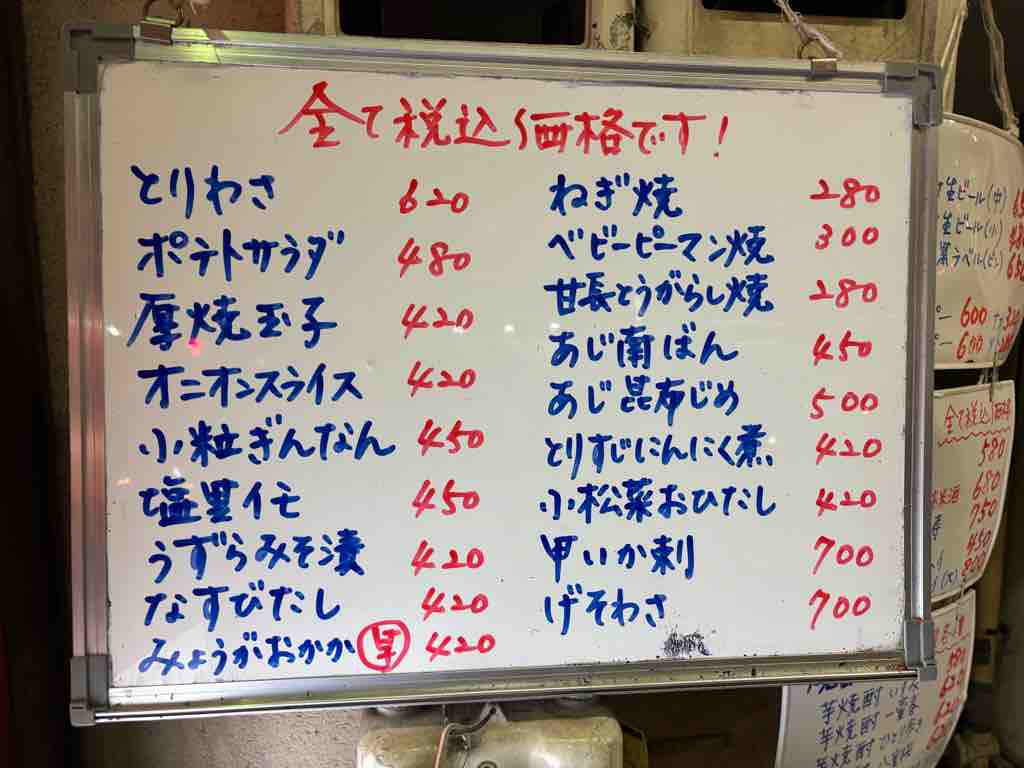 全て税込価格です!
とりわさ 620
ポテトサラダ 480
厚焼玉子 420
オニオンスライス 420
小粒ぎんなん 450
塩里イモ 450
うずらみそ漬 420
なすびだし 420
みょうがおかか 420
ねぎ焼 280
ベビーピーマン焼 300
甘長とうがらし焼 280
あじ南ばん 450
あじ昆布じめ 500
とりすじにんにく煮 420
小松菜おひたし 420
甲いか刺 700
げそわさ 700
生ビール(中)
生ビール(小)
黒ラベル(ビン)
600
600
全て税込価格
580
680
750
450
800
芋焼酎
芋焼酎 一番
芋焼酎
芋焼酎
620